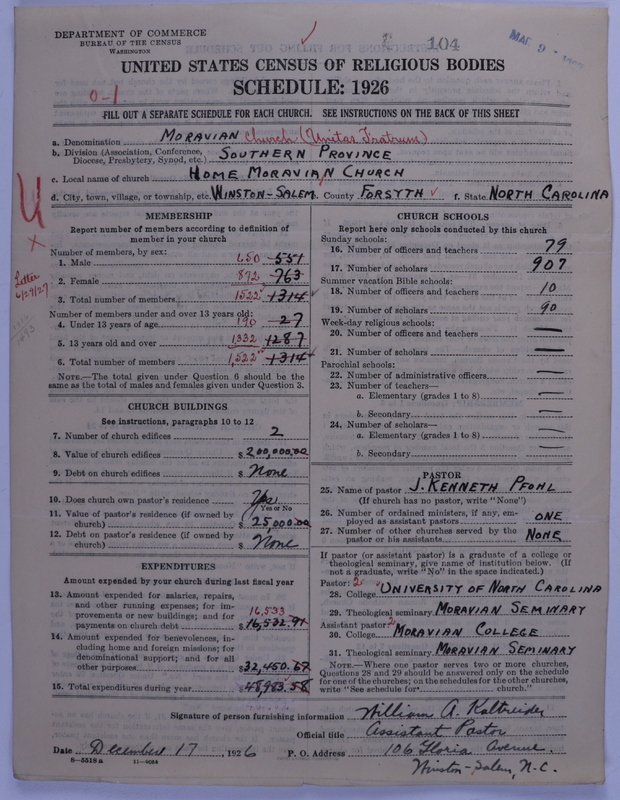 DEPARTMENT OF COMMERCE
BUREAU OF THE CENSUS
WASHINGTON
104
MAR 9
UNITED STATES CENSUS OF RELIGIOUS BODIES
SCHEDULE: 1926
0-1
FILL OUT A SEPARATE SCHEDULE FOR EACH CHURCH. SEE INSTRUCTIONS ON THE BACK OF THIS SHEET
a. Denomination MORAVIAN Church (Unitas Fratrum)
b. Division (Association, Conference, Diocese, Presbytery, Synod, etc.) SOUTHERN PROVINCE
c. Local name of church HOME MORAVIAN CHURCH
d. City, town, village, or township, etc. WINSTON-SALEM County FORSYTH f. State NORTH CAROLINA
Letter
4/29/27
MEMBERSHIP
Report number of members according to definition of
member in your church
Number of members, by sex:
1. Male 650 551
2. Female 872 763
3. Total number of members 1522 1314
Number of members under and over 13 years old:
4. Under 13 years of age 190 27
5. 13 years old and over 1,332 1287
6. Total number of members 1,522 1314
NOTE.—The total given under Question 6 should be
same as the total of males and females given under Question 3.
CHURCH BUILDINGS
See instructions, paragraphs 10 to 12
7. Number of church edifices 2
8. Value of church edifices $200,000.00
9. Debt on church edifices $ None
10. Does church own pastor's residence Yes
Yes or No
11. Value of pastor's residence (if owned by
church) $25,000.00
12. Debt on pastor's residence (if owned by
church) $ None
EXPENDITURES
Amount expended by your church during last fiscal year
13. Amount expended for salaries, repairs,
and other running expenses; for im-
provements or new buildings; and for 16,533
payments on church debt $16,532.91
14. Amount expended for benevolences, in-
cluding home and foreign missions; for
denominational support; and for all
other purposes $32,450.67
15. Total expenditures during year $48,983.58
CHURCH SCHOOLS
Report here only schools conducted by this church
Sunday schools:
16. Number of officers and teachers 79
17. Number of scholars 907
Summer vacation Bible schools:
18. Number of officers and teachers 10
19. Number of scholars 90
Week-day religious schools:
20. Number of officers and teachers —
21. Number of scholars —
Parochial schools:
22. Number of administrative officers —
23. Number of teachers—
a. Elementary (grades 1 to 8) —
b. Secondary —
24. Number of scholars—
a. Elementary (grades 1 to 8) —
b. Secondary —
PASTOR
25. Name of pastor J. KENNETH PFOHL
(If church has no pastor, write "None")
26. Number of ordained ministers, if any, em-
ployed as assistant pastors ONE
27. Number of other churches served by the
pastor or his assistants NONE
If pastor (or assistant pastor) is a graduate of a college or
theological seminary, give name of institution below. (If
not a graduate, write "No" in the space indicated.)
Pastor: 2
28. College UNIVERSITY OF NORTH CAROLINA
29. Theological seminary MORAVIAN SEMINARY
Assistant pastor: 2
30. College MORAVIAN COLLEGE
31. Theological seminary MORAVIAN SEMINARY
NOTE.—Where one pastor serves two or more churches,
Questions 28 and 29 should be answered only on the schedule
for one of the churches; on the schedules for the other churches,
write "See schedule for church."
Signature of person furnishing information William A. Kaltreider
Official title Assistant Pastor
Date December 17, 1926 P. O. Address 106 Gloria Avenue.
Winston-Salem, N.C.
8—5518a 11—9084